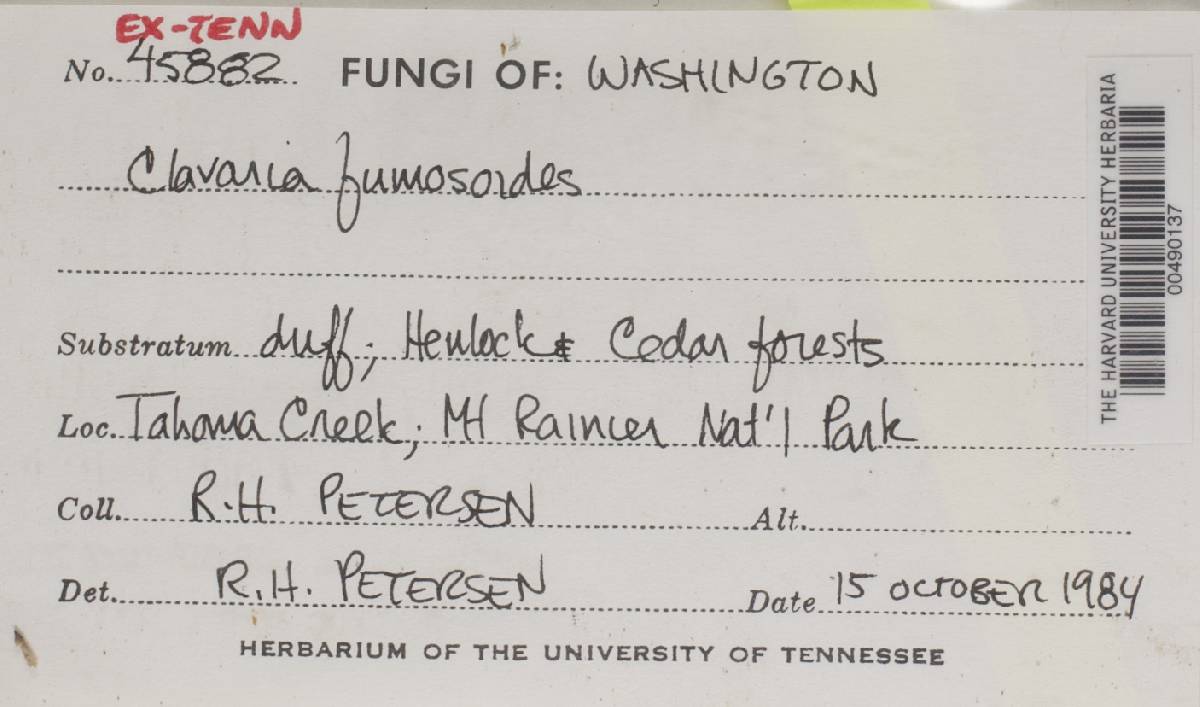 EX-TENN
No. 45882 FUNGI OF: WASHINGTON
Clavaria fumosoides
Substratum duff; Hemlock & Cedar forests
Loc. Tahoma Creek; Mt Rainier Nat'l Park
Coll. R.H. PETERSEN Alt.
Det. R.H. PETERSEN Date 15 OCTOBER 1984
HERBARIUM OF THE UNIVERSITY OF TENNESSEE
THE HARVARD UNIVERSITY HERBARIA
00490137